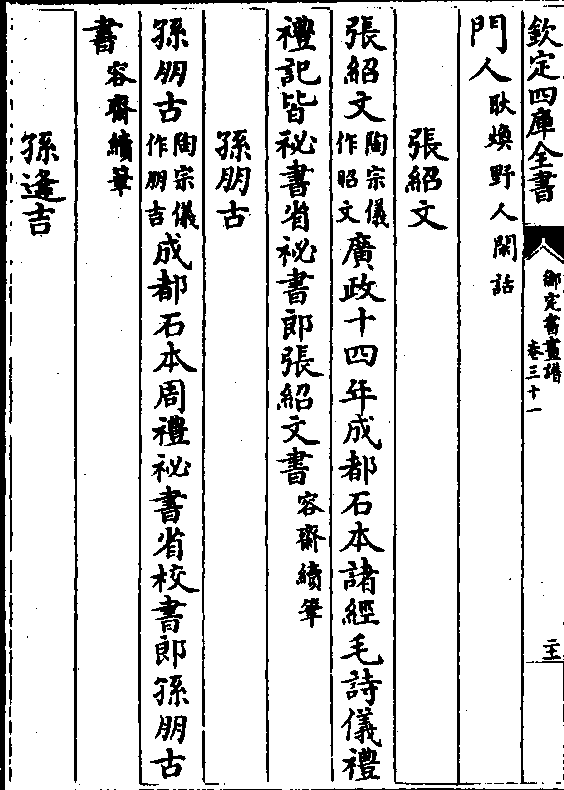 欽定四庫全書
御定書畫譜
卷三十一
門人耿煥野人閑話
張紹文
張紹文陶宗儀作昭文廣政十四年成都石本諸經毛詩儀禮
禮記皆祕書省祕書郎張紹文書容齋續筆
孫朋古
孫朋古陶宗儀作朋吉成都石本周禮祕書省校書郎孫朋古
書容齋續筆
孫逢吉